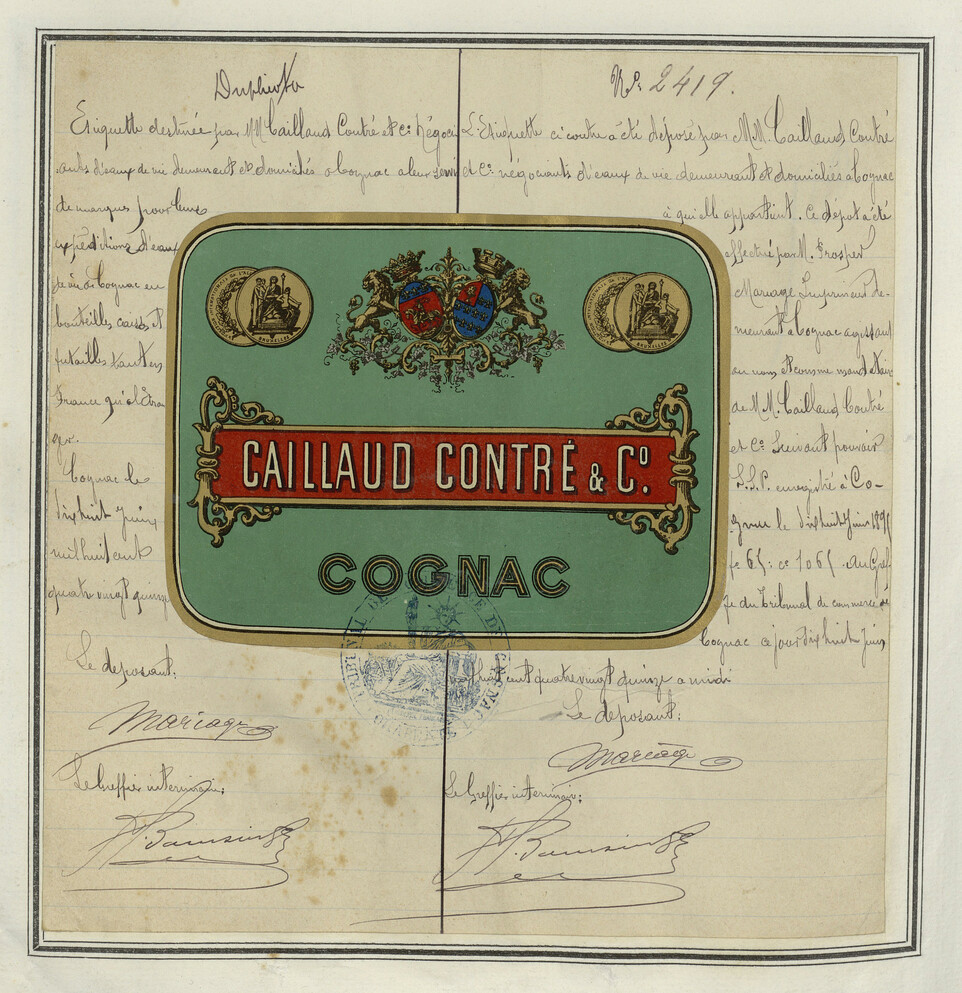 Duplicata
Etiquette destinée par MM Caillaud Contré et Cie Négoci
ants d'eaux de vie demeurant et domiciliés à Cognac à leur servir
de marques pour leurs
expéditions d'eaux
de vie de Cognac en
bouteilles caisses et
futailles tant en
France qu'à l'Etran
ger.
Cognac le
dix huit Juin
mil huit cent
quatre vingt quinze
Le deposant:
Mariage
Le Greffier interimaire:
N°: 2419.
L'Etiquette ci contre a été déposé par M.M. Caillaud Contré
et Cie négociants d'eaux de vie demeurant et domiciliés à Cognac
à qui elle appartient. Ce dépot a été
effectué par M. Prosper
Mariage Imprimeur de-
meurant à Cognac agissant
au nom et comme mandataire
de M.M. Caillaud Contré
et Cie Suivant pouvoir
S.S.P. enregistré à Co-
gnac le dix huit Juin 1895
fo 65: ce 1065. Au Gref
fe du Tribunal de commerce de
Cognac ce jour dix huit Juin
mil huit cent quatre vingt quinze a midi
Le deposant:
Mariage
Le Greffier interimaire:
CAILLAUD CONTRÉ & Cº.
COGNAC
BRUXELLES
BRUXELLES
TRIBUNAL DE COMMERCE DE COGNAC
CHARENTE